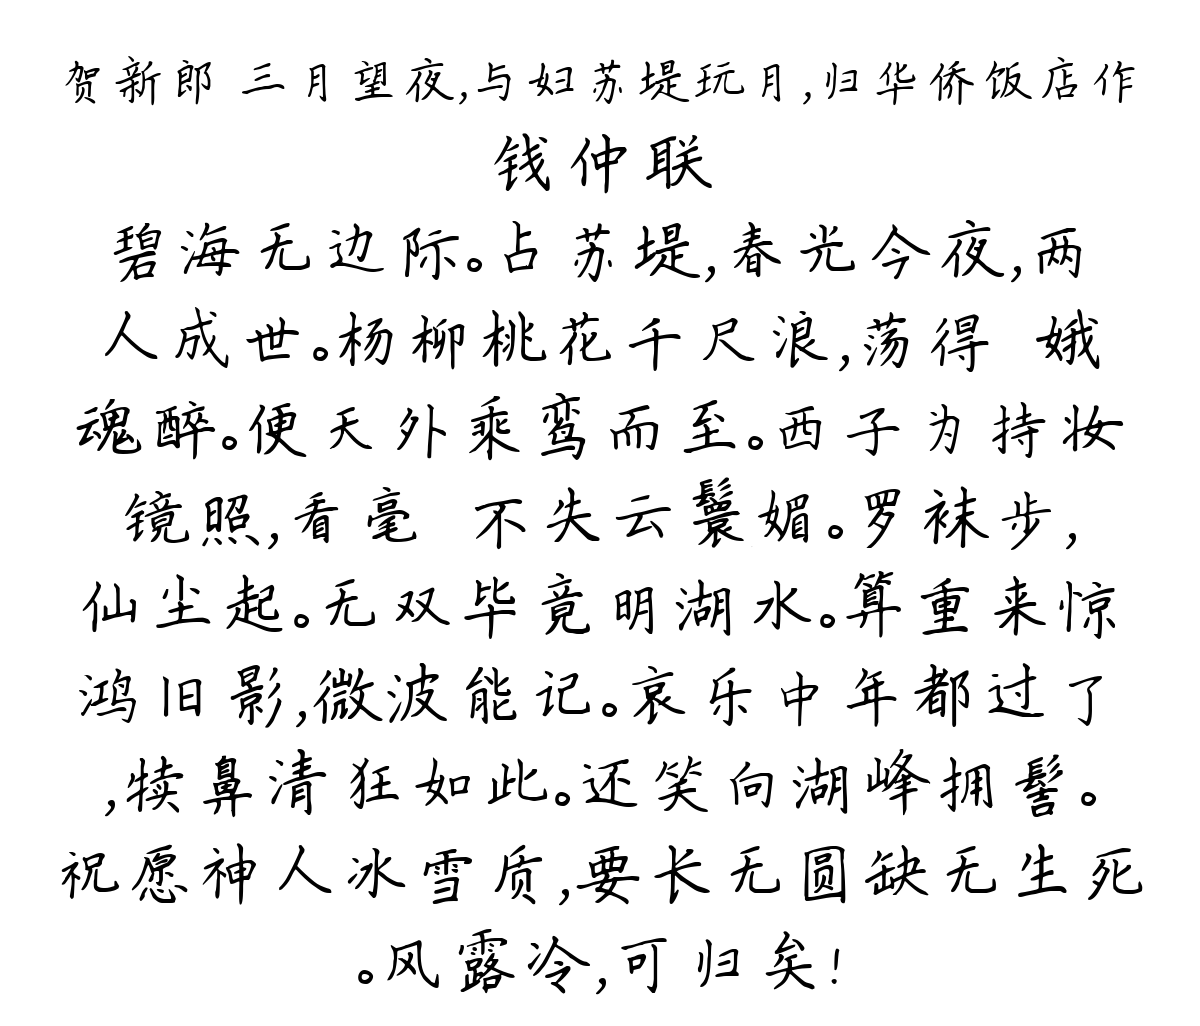 贺新郎 三月望夜,与妇苏堤玩月,归华侨饭店作
钱仲联
碧海无边际。占苏堤,春光今夜,两
人成世。杨柳桃花千尺浪,荡得 娥
魂醉。便天外乘鸾而至。西子为持妆
镜照,看毫 不失云鬟媚。罗袜步,
仙尘起。无双毕竟明湖水。算重来惊
鸿旧影,微波能记。哀乐中年都过了
,犊鼻清狂如此。还笑向湖峰拥髻。
祝愿神人冰雪质,要长无圆缺无生死
。风露冷,可归矣!